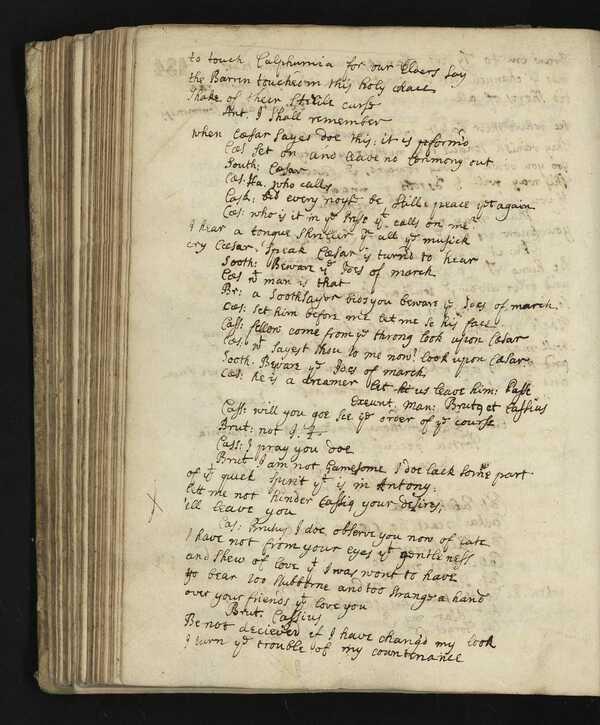 to touch Calphurnia for our Elders say
the Barrin touched in this holy chace
Shake of their sterile curse
Ant. I shall remember
when Cæsar sayes doe this; it is pformd
Cæs set on and leave no ceremony out
South: Cæsar
Cæs: Ha. who calls
Cask: bid every noyse be still: peace yet again
Cæs: who is it in ye prese yt calls on me
I hear a tongue shriller yn all ye musick
cry Cæsar. speak Cæsar is turnd to hear
Sooth: Beware ye Ides of march
Cæs wt man is that
Br: a Soothsayer bids you beware ye Ides of march.
Cæs: set him before mee let me se his face
Cass: fellow come from ye throng look upon Cæsar
Cæs. wt sayest thou to me now? look upon Cæsar
Sooth. Beware ye Ides of march
Cæs: he is a dreamer let us leave him: Passe
Exeunt. Man: Brutq et Cassius
Cass: will you goe see ye order of ye course
Brut: not I.
Cass: I pray you doe
Brut I am not Gamesome I doe lack some part
of yt quick spirit yt is in Antony.
lett me not hinder Cassiq your desires;
ill leave you
Cas: Brutus I doe observe you now of late
I have not from your eyes yt gentleness
and shew of love yt I was wont to have
yo bear too stubborne and too strange a hand
over your friends yt love you
Brut. Cassius
Be not decieved if I have changd my look
I turn ye trouble of my countenance